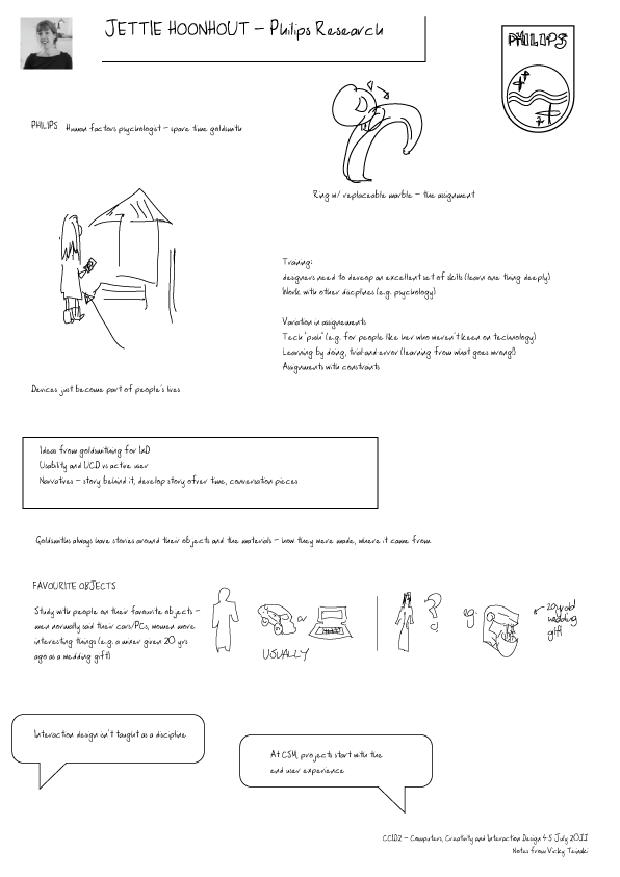 JETTIE HOONHOUT – Philips Research
PHILIPS
PHILIPS Human factors psychologist – spare time goldsmith
Ring w/ replaceable marble = the assignment
Training:
designers need to develop an excellent set of skills (learn one thing deeply)
Work with other discplines (e.g. psychology)
Variation in assignements
Tech "push" (e.g. for people like her who weren't keen on technology)
Learning by doing, trial-and-error (learning from what goes wrong!)
Assignments with constraints
Devices just become part of people's lives
Ideas from goldsmithing for IxD
Usability and UCD vs active user
Narratives – story behind it, develop story over time, conversation pieces
Goldsmiths always have stories around their objects and the materials – how they were made, where it came from
FAVOURITE OBJECTS
Study with people on their favourite objects –
men normally said their cars/PCs, women more
interesting things (e.g. a mixer given 20 yrs
ago as a wedding gift)
or
USUALLY
?
eg.
20yr old
wedding
gift
Interaction design isn't taught as a discipline
At CSM, projects start with the
end user experience
CCID2 – Computers, Creativity and Interaction Design 4-5 July 2011
Notes from Vicky Teinaki